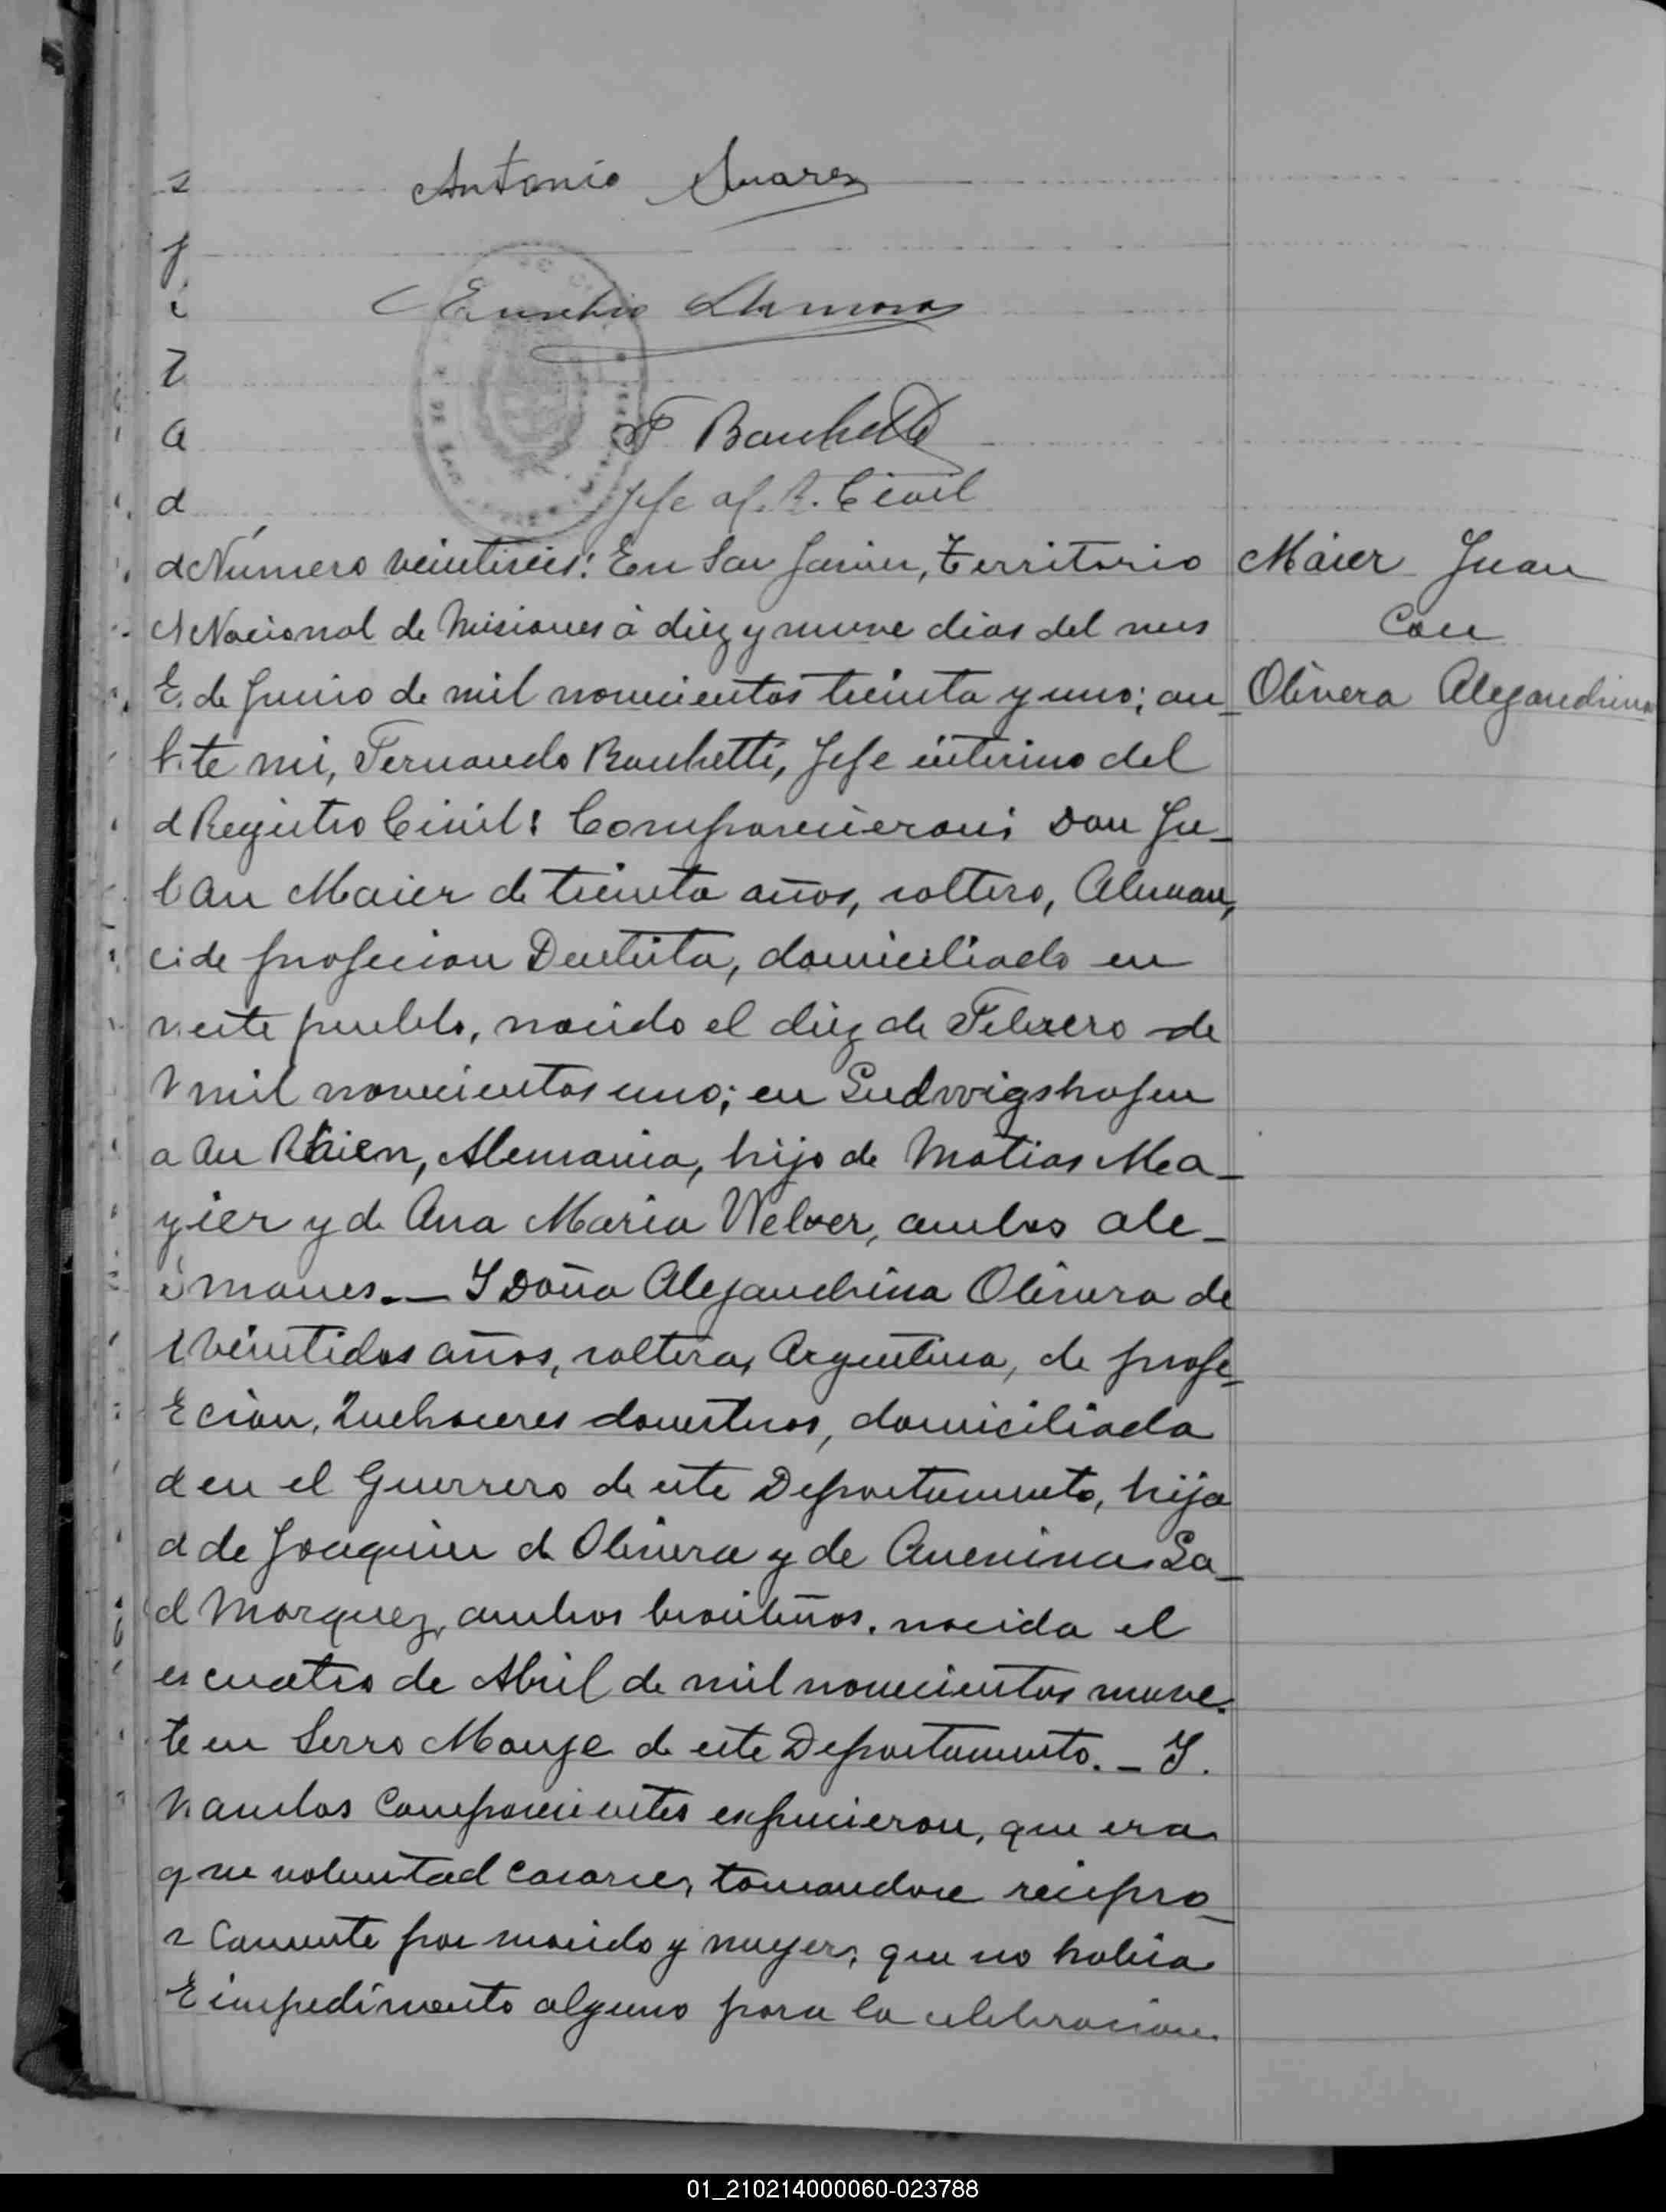 Antonio Suarez
Eusebio Llamosas
F Banchetti
Jefe of. R. Civil
Número veintiseis: En San Javier, Territorio
Nacional de Misiones á diez y nueve dias del mes
de Junio de mil novecientos treinta y uno; an-
te mi, Fernando Banchetti, Jefe interino del
Registro Civil: Comparecieron; Don Ju-
an Maier de treinta años, soltero, Aleman,
de profecion Dentista, domiciliado en
este pueblo, nacido el diez de Febrero de
mil novecientos uno; en Ludwigshofen
au Rhien, Alemania, hijo de Matias Mea-
yier y de Ana Maria Welver, ambos ale-
manes._ Y Doña Alejandrina Olivera de
veintidos años, soltera, Argentina, de profe-
cion, Quehaceres domesticos, domiciliada
en el Guerrero de este Departamento, hija
de Joaquin d Olivera y de
Marquez, ambos brasileños. nacida el
cuatro de Abril de mil novecientos nueve.
en Serro Monje de este Departamento._ Y.
ambos Comparecientes expucieron, que era
su voluntad casarse, tomandose recipro-
camente por marido y muyer, que no habia
impedimento alguno para la celebracion.
Maier Juan
Con
Olivera Alejandrina
01_210214000060-023788